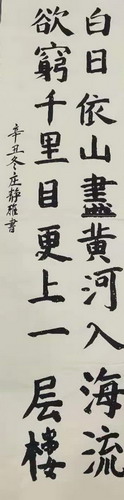 白日依山盡黄河入海流
欲窮千里目更上一层樓
辛丑冬庄静雅書